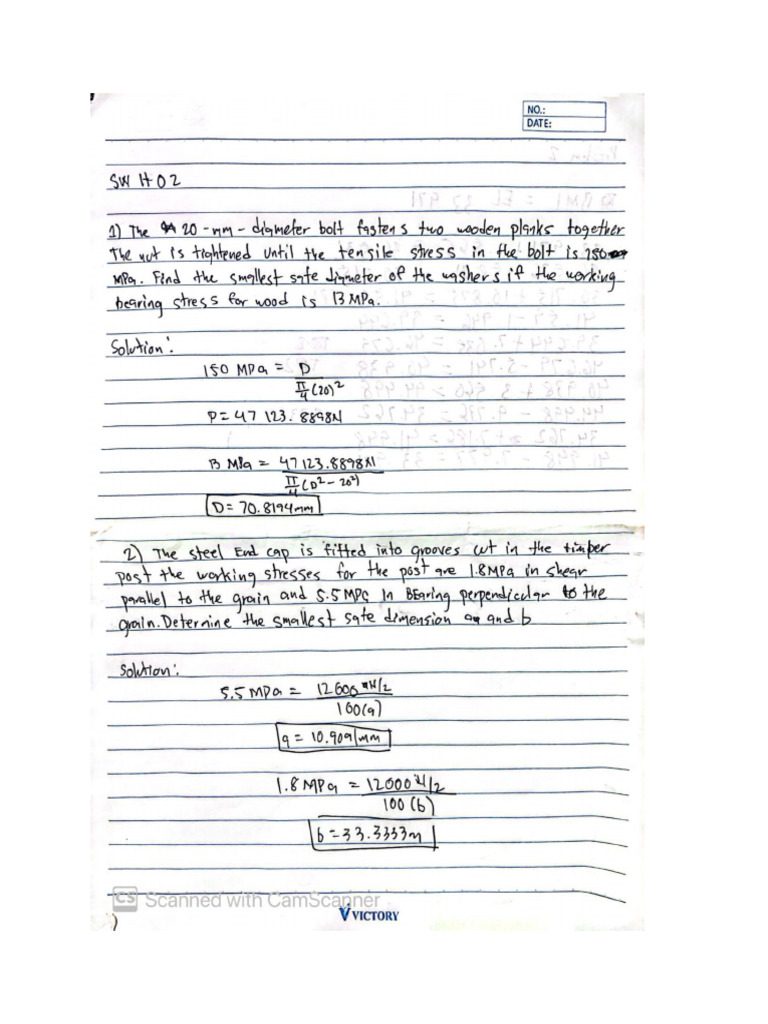 NO.:
DATE:
SW # 02
1) The 20-mm-diameter bolt fastens two wooden planks together
The nut is tightened until the tensile stress in the bolt is 150
MPa. Find the smallest safe diameter of the washers if the working
bearing stress for wood is 13 MPa.
Solution:
150 MPa = P
π/4 (20)²
P = 47 123.8898N
13 MPa = 47123.8898N
π/4 (D² - 20²)
D = 70.8194mm
2) The steel End cap is fitted into grooves cut in the timber
post the working stresses for the post are 1.8MPa in shear
parallel to the grain and 5.5 MPa in Bearing perpendicular to the
grain. Determine the smallest safe dimension a and b
Solution:
5.5 MPa = 12000 N/2
100(a)
a = 10.909 mm
1.8 MPa = 12000 N/2
100 (b)
b = 33.3333m
CS Scanned with CamScanner
VICTORY